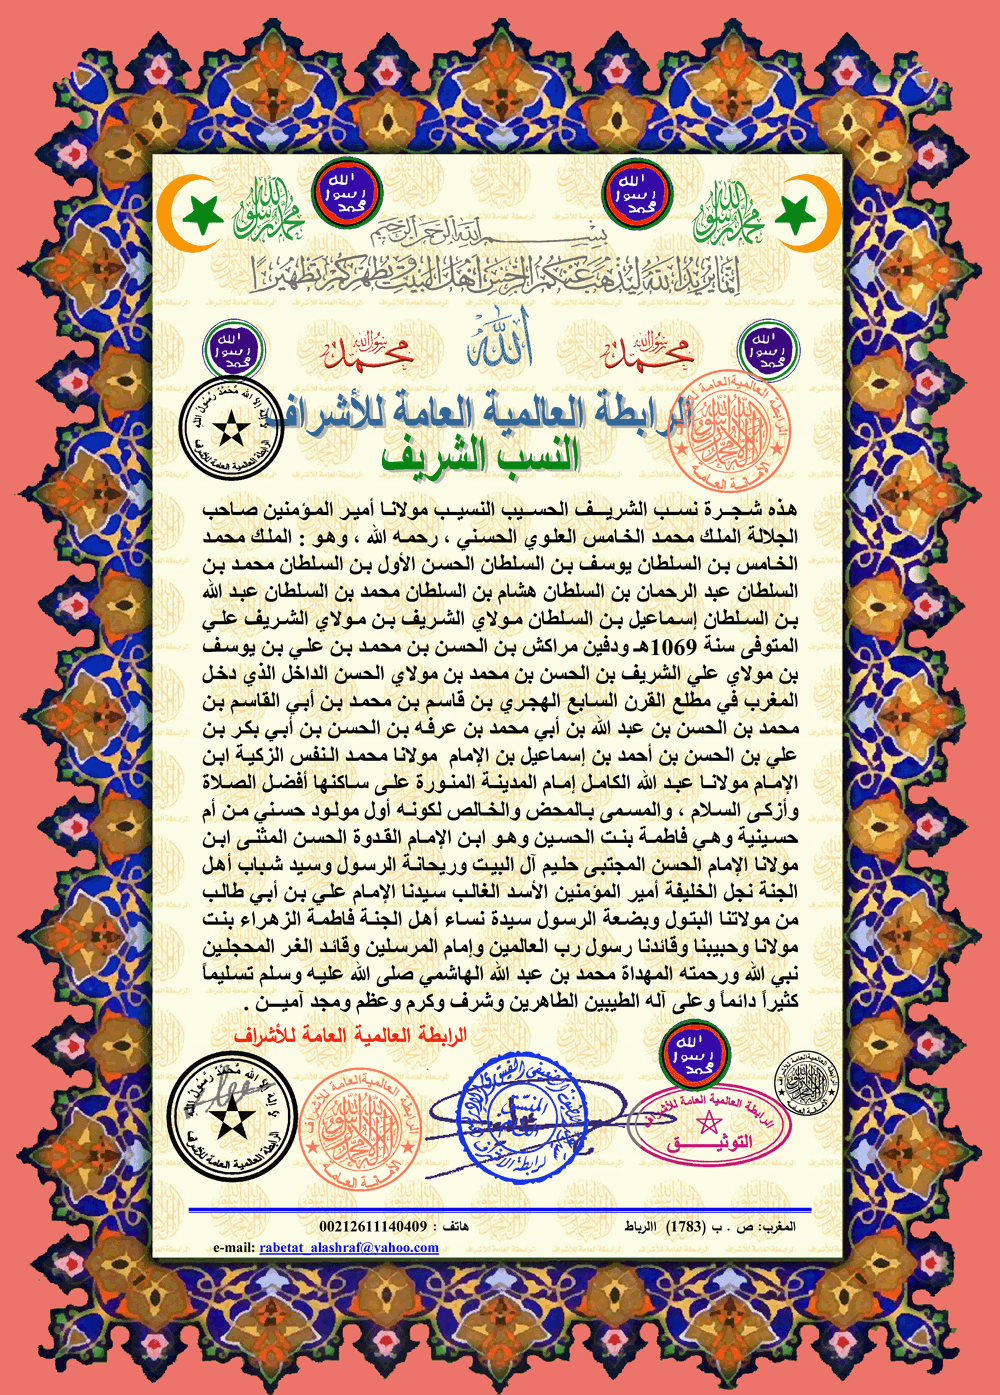 الله
رسول
محمد
الله
رسول
محمد
بسم الله الرحمن الرحيم
إنما يريد الله ليذهب عنكم الرجس أهل البيت ويطهركم تطهيرا
الله
رسول
محمد
محمد رسول الله
الله
محمد رسول الله
الله
رسول
محمد
الرابطة العالمية العامة للأشراف
النسب الشريف
هذه شجرة نسب الشريف الحسيب النسيب مولانا أمير المؤمنين صاحب
الجلالة الملك محمد الخامس العلوي الحسني ، رحمه الله ، وهو : الملك محمد
الخامس بن السلطان يوسف بن السلطان الحسن الأول بن السلطان محمد بن
السلطان عبد الرحمان بن السلطان هشام بن السلطان محمد بن السلطان عبد الله
بن السلطان إسماعيل بن السلطان مولاي الشريف بن مولاي الشريف علي
المتوفى سنة 1069هـ ودفين مراكش بن الحسن بن محمد بن علي بن يوسف
بن مولاي علي الشريف بن الحسن بن محمد بن مولاي الحسن الداخل الذي دخل
المغرب في مطلع القرن السابع الهجري بن قاسم بن محمد بن أبي القاسم بن
محمد بن الحسن بن عبد الله بن أبي محمد بن عرفه بن الحسن بن أبي بكر بن
علي بن الحسن بن أحمد بن إسماعيل بن الإمام مولانا محمد النفس الزكية ابن
الإمام مولانا عبد الله الكامل إمام المدينة المنورة على ساكنها أفضل الصلاة
وأزكى السلام ، والمسمى بالمحض والخالص لكونه أول مولود حسني من أم
حسينية وهي فاطمة بنت الحسين وهو ابن الإمام القدوة الحسن المثنى ابن
مولانا الإمام الحسن المجتبى حليم آل البيت وريحانة الرسول وسيد شباب أهل
الجنة نجل الخليفة أمير المؤمنين الأسد الغالب سيدنا الإمام علي بن أبي طالب
من مولاتنا البتول وبضعة الرسول سيدة نساء أهل الجنة فاطمة الزهراء بنت
مولانا وحبيبنا وقائدنا رسول رب العالمين وإمام المرسلين وقائد الغر المحجلين
نبي الله ورحمته المهداة محمد بن عبد الله الهاشمي صلى الله عليه وسلم تسليماً
كثيراً دائماً وعلى آله الطيبين الطاهرين وشرف وكرم وعظم ومجد آمين .
الرابطة العالمية العامة للأشراف
الله
رسول
محمد
لا إله إلا الله محمد رسول الله
الرابطة العالمية العامة للأشراف
الرابطة العالمية العامة للأشراف
الأمانة العامة
الرابطة العالمية العامة للأشراف
التوثيق
المغرب: ص . ب (1783) الرباط هاتف : 00212611140409
e-mail: rabetat_alashraf@yahoo.com